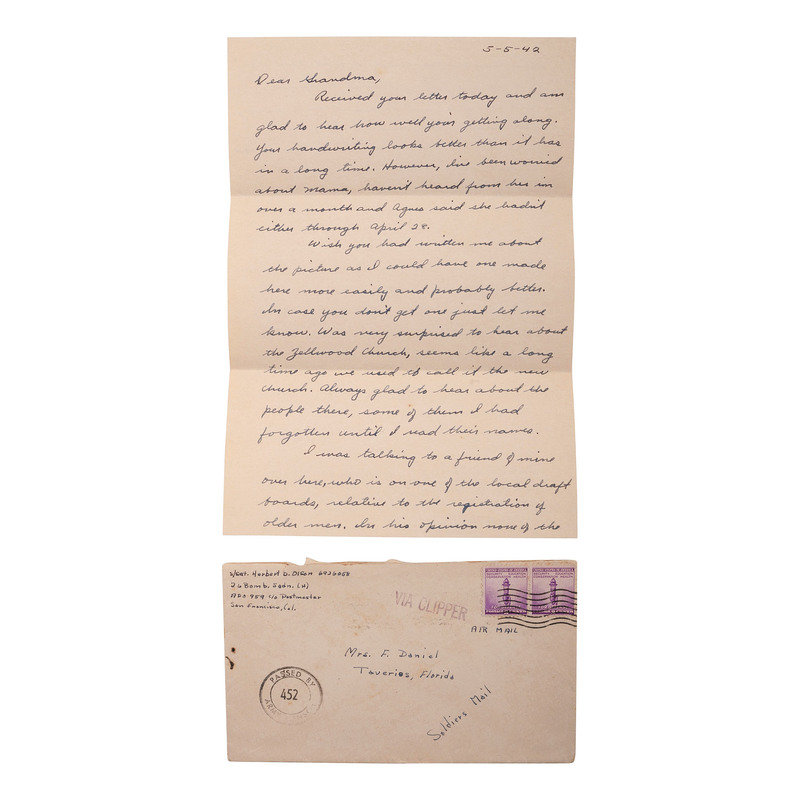 5-5-42
Dear Grandma,
Received your letter today and am
glad to hear how well your getting along.
Your handwriting looks better than it has
in a long time. However, I've been worried
about Mama, haven't heard from her in
over a month and Agnes said she hadn't
either through April 28.
Wish you had written me about
the picture as I could have one made
here more easily and probably better.
In case you don't get one just let me
know. Was very surprised to hear about
the Zellwood Church, seems like a long
time ago we used to call it the new
church. Always glad to hear about the
people there, some of them I had
forgotten until I read their names.
I was talking to a friend of mine
over here, who is on one of the local draft
boards, relative to the registration of
older men. In his opinion none of the
S/Sgt. Herbert D. Olson
26 Bomb. Sqdn. (H)
APO 959 c/o Postmaster
San Francisco, Cal.
VIA CLIPPER
UNITED STATES OF AMERICA
UNITED STATES OF AMERICA
AIR MAIL
Mrs. F. Daniel
Tavares, Florida
PASSED BY
452
ARMY
Soldiers Mail